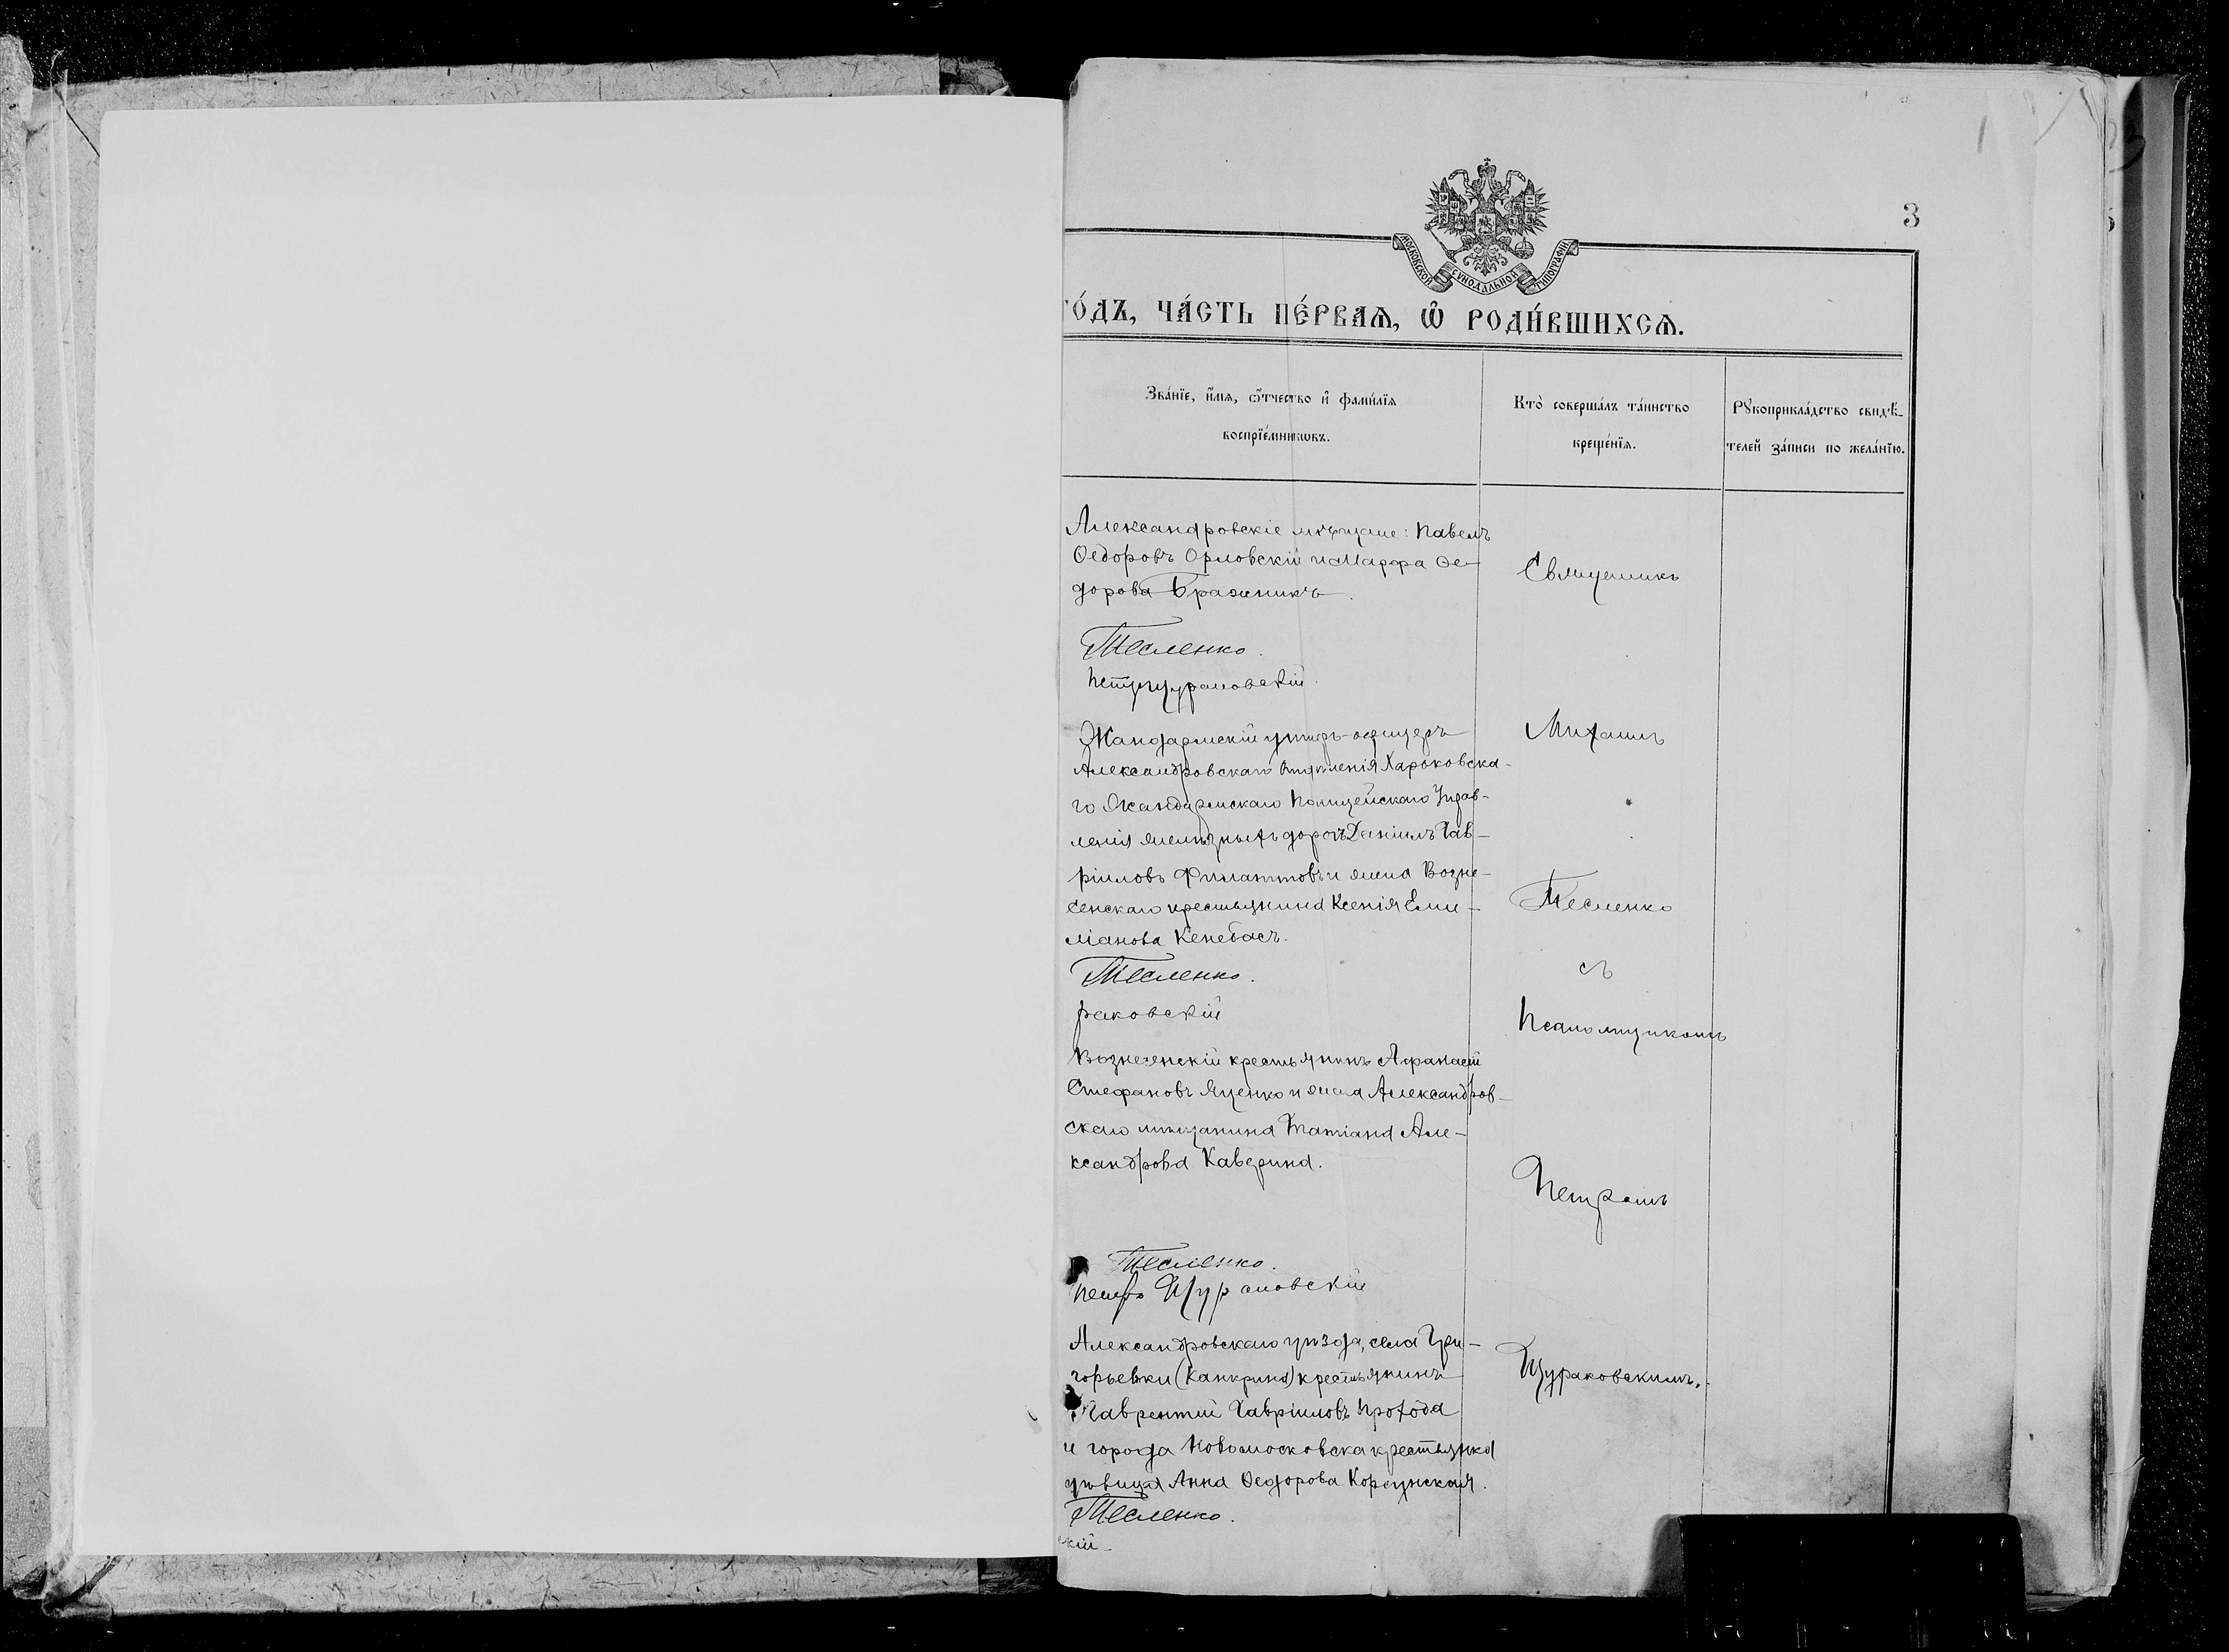 3
МОСКОВСКОЙ СУНОДАЛЬНОЙ ТИПОГРАФІИ
го́дъ, ча́сть пе́рваѧ, ѡ҆ роди́вшихсѧ.
Зва́нїе, и҆́мѧ, ѻ҆́тчество и҆ фами́лїѧ
воспрїе́мникѡвъ.
Кто̀ соверша́лъ та́инство
креще́нїѧ.
Рꙋкоприкла́дство свидѣ́-
телей за́писи по жела́нїю.
Александровскіе мѣщане: Павелъ
Ѳедоровъ Орловскій и Марфа Ѳе-
дорова Бражникъ.
Тесленко.
Петръ Щураковскій.
Жандармскій унтеръ-офицеръ
Александровскаго Отдѣленія Харьковска-
го Жандармскаго Полицейскаго Управ-
ленія желѣзныхъ дорогъ Даніилъ Гав-
ріиловъ Филаттовъ и жена Возне-
сенскаго крестьянина Ксенія Еми-
ліанова Кенебасъ.
Тесленко.
раковскій
Вознесенскій крестьянинъ Афанасій
Стефановъ Яценко и жена Александров-
скаго мѣщанина Татіана Але-
ксандрова Каверина.
Тесленко.
Петръ Щураковскій
Александровскаго уѣзда, села Гри-
горьевки (Канкрина) крестьянинъ
Лаврентій Гавріиловъ Прохода
и города Новомосковска крестьянка
дѣвица Анна Ѳеодорова Корсунская.
Тесленко.
скій
Священникъ
Михаилъ
Тесленко
съ
Псаломщикомъ
Петромъ
Щураковскимъ.